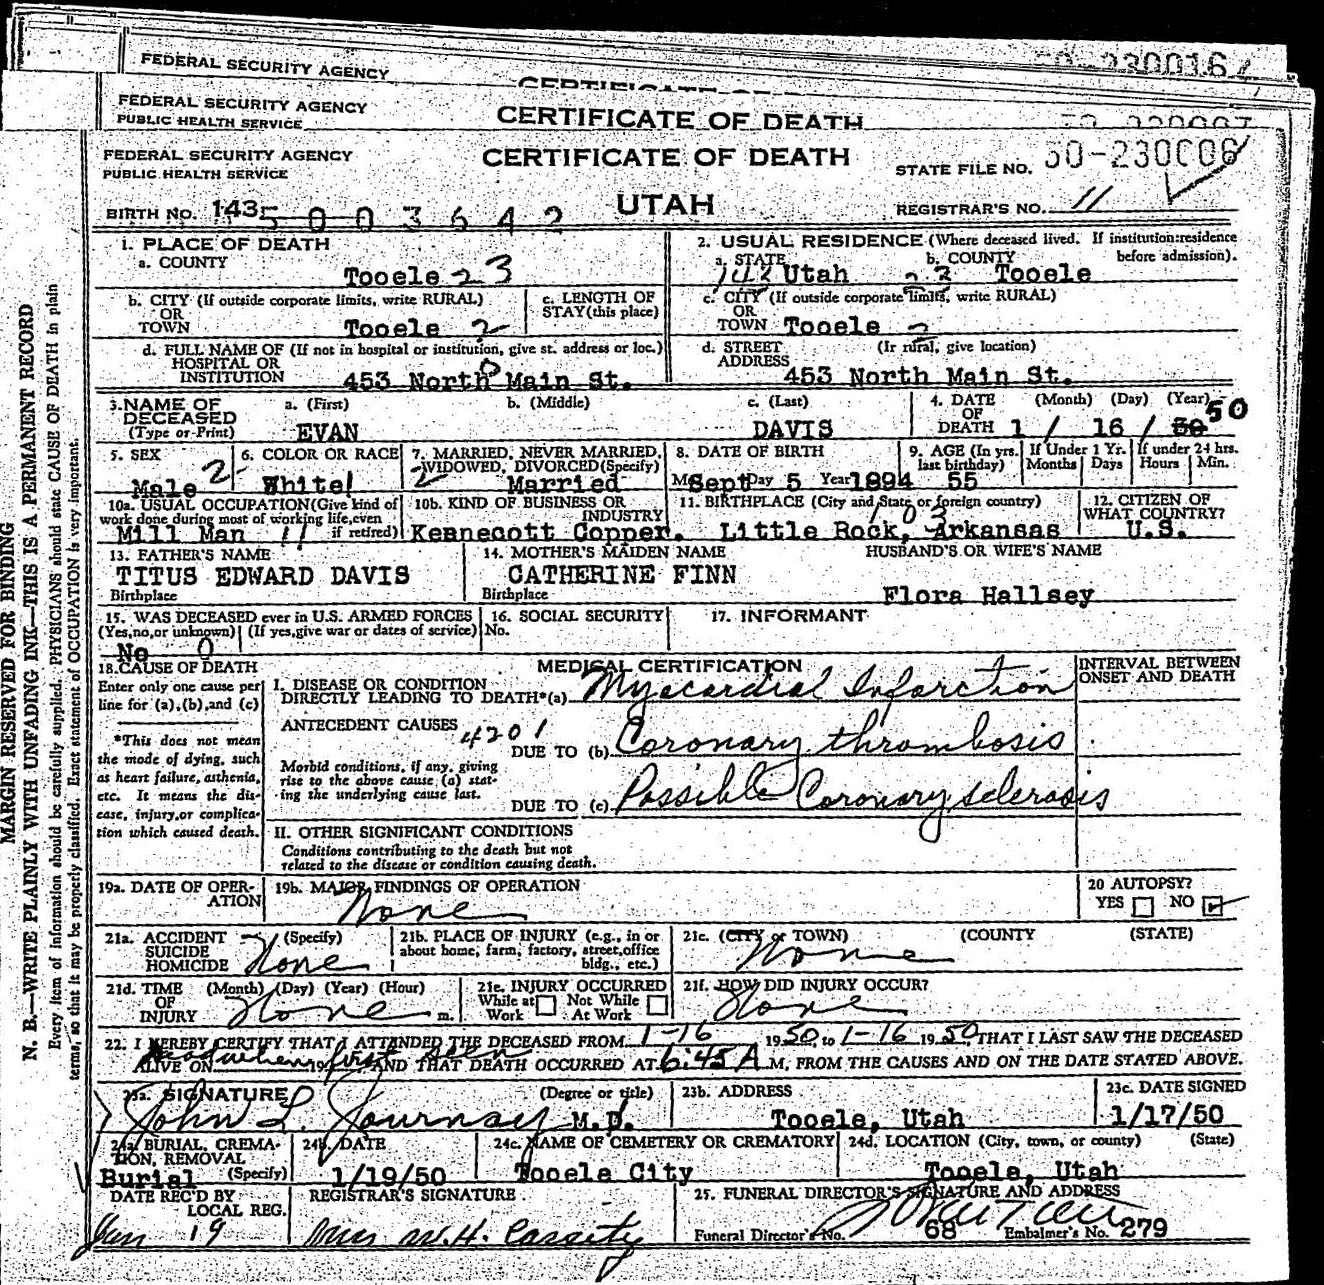 FEDERAL SECURITY AGENCY
CERTIFICATE OF DEATH
FEDERAL SECURITY AGENCY
PUBLIC HEALTH SERVICE
CERTIFICATE OF DEATH
FEDERAL SECURITY AGENCY
PUBLIC HEALTH SERVICE
CERTIFICATE OF DEATH
UTAH
STATE FILE NO. 50-230006
REGISTRAR'S NO. 11
BIRTH NO. 143 5003642
1. PLACE OF DEATH
a. COUNTY
Tooele 23
2. USUAL RESIDENCE (Where deceased lived. If institution: residence before admission).
a. STATE Utah
b. COUNTY Tooele
b. CITY (If outside corporate limits, write RURAL)
OR
TOWN Tooele 2
c. LENGTH OF
STAY (this place)
c. CITY (If outside corporate limits, write RURAL)
OR
TOWN Tooele 2
d. FULL NAME OF (If not in hospital or institution, give st. address or loc.)
HOSPITAL OR
INSTITUTION 453 North Main St. 0
d. STREET (If rural, give location)
ADDRESS 453 North Main St.
3. NAME OF
DECEASED
(Type or Print)
a. (First) b. (Middle) c. (Last)
EVAN DAVIS
4. DATE (Month) (Day) (Year)
OF
DEATH 1 / 16 / 50 50
5. SEX
Male 2
6. COLOR OR RACE
White 1
7. MARRIED, NEVER MARRIED,
WIDOWED, DIVORCED (Specify)
2 Married
8. DATE OF BIRTH
M Sept Day 5 Year 1894
9. AGE (In yrs. last birthday) 55
If Under 1 Yr. Months Days
If under 24 hrs. Hours Min.
10a. USUAL OCCUPATION (Give kind of
work done during most of working life, even
if retired)
Mill Man 11
10b. KIND OF BUSINESS OR
INDUSTRY
Kennecott Copper.
11. BIRTHPLACE (City and State or foreign country)
103
Little Rock, Arkansas
12. CITIZEN OF
WHAT COUNTRY?
U.S.
13. FATHER'S NAME
TITUS EDWARD DAVIS
Birthplace
14. MOTHER'S MAIDEN NAME
CATHERINE FINN
Birthplace
HUSBAND'S OR WIFE'S NAME
Flora Hallsey
15. WAS DECEASED ever in U.S. ARMED FORCES
(Yes, no, or unknown) (If yes, give war or dates of service)
No 0
16. SOCIAL SECURITY
No.
17. INFORMANT
18. CAUSE OF DEATH
Enter only one cause per
line for (a), (b), and (c)
*This does not mean
the mode of dying, such
as heart failure, asthenia,
etc. It means the dis-
ease, injury, or complica-
tion which caused death.
MEDICAL CERTIFICATION
INTERVAL BETWEEN
ONSET AND DEATH
I. DISEASE OR CONDITION
DIRECTLY LEADING TO DEATH* (a) Myocardial Infarction
ANTECEDENT CAUSES 4201
DUE TO (b) Coronary thrombosis
Morbid conditions, if any, giving
rise to the above cause (a) stat-
ing the underlying cause last.
DUE TO (c) Possible Coronary sclerosis
II. OTHER SIGNIFICANT CONDITIONS
Conditions contributing to the death but not
related to the disease or condition causing death.
19a. DATE OF OPER-
ATION
19b. MAJOR FINDINGS OF OPERATION
None
20 AUTOPSY?
YES NO
21a. ACCIDENT (Specify)
SUICIDE
HOMICIDE None
21b. PLACE OF INJURY (e.g., in or
about home, farm, factory, street, office
bldg., etc.)
21c. (CITY or TOWN) (COUNTY (STATE)
None
21d. TIME (Month) (Day) (Year) (Hour)
OF
INJURY None m.
21e. INJURY OCCURRED
While at Work Not While At Work
21f. HOW DID INJURY OCCUR?
None
22. I HEREBY CERTIFY THAT I ATTENDED THE DECEASED FROM 1-16 1950, to 1-16 1950, THAT I LAST SAW THE DECEASED
ALIVE ON dead when first seen 19 AND THAT DEATH OCCURRED AT 6:45 A M, FROM THE CAUSES AND ON THE DATE STATED ABOVE.
23a. SIGNATURE (Degree or title)
John L. Journay M.D.
23b. ADDRESS
Tooele, Utah
23c. DATE SIGNED
1/17/50
24a. BURIAL, CREMA-
TION, REMOVAL
(Specify)
Burial
24b. DATE
1/19/50
24c. NAME OF CEMETERY OR CREMATORY
Tooele City
24d. LOCATION (City, town, or county) (State)
Tooele, Utah
DATE REC'D BY
LOCAL REG.
Jan 19
REGISTRAR'S SIGNATURE
Mrs W.H. Cassity
25. FUNERAL DIRECTOR'S SIGNATURE AND ADDRESS
Funeral Director's No. 68 Embalmer's No. 279
MARGIN RESERVED FOR BINDING
N. B.—WRITE PLAINLY WITH UNFADING INK—THIS IS A PERMANENT RECORD
Every item of information should be carefully supplied. PHYSICIANS should state CAUSE OF DEATH in plain
terms, so that it may be properly classified. Exact statement of OCCUPATION is very important.